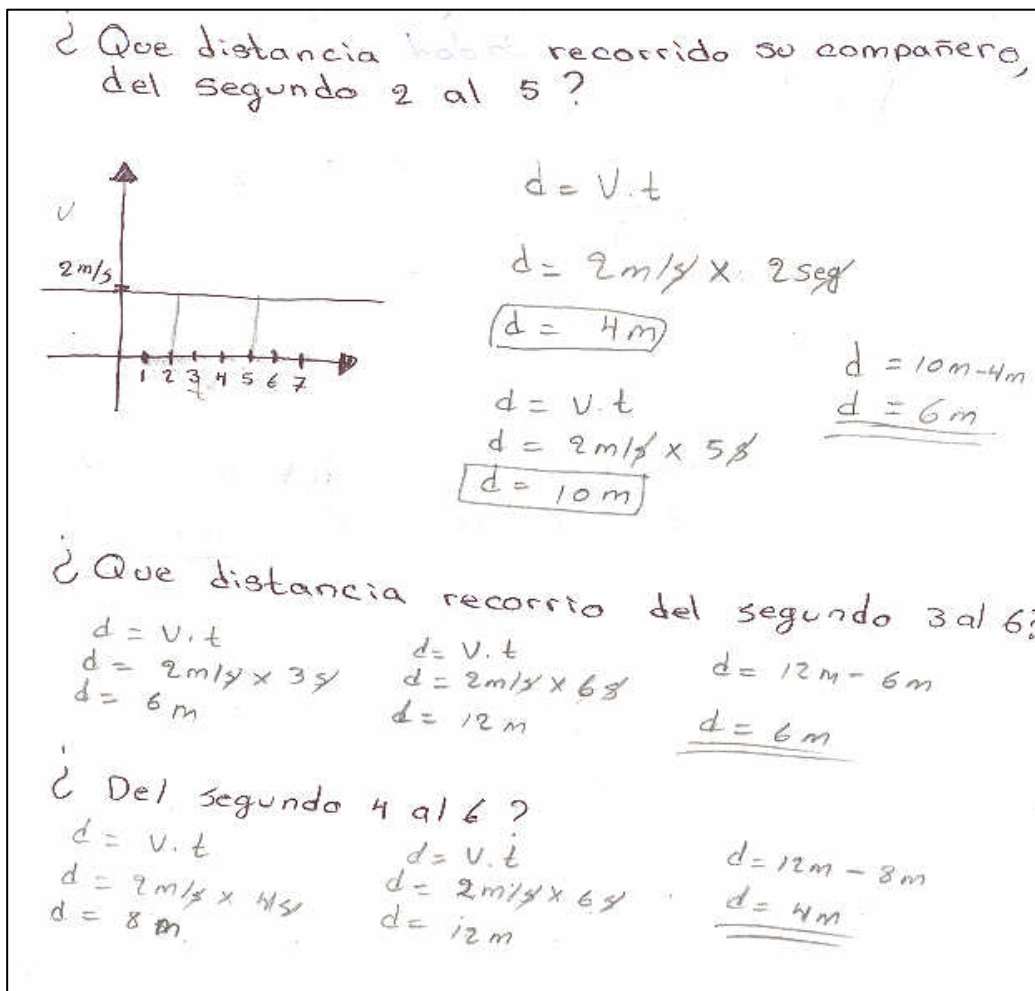 ¿ Que distancia recorrido su compañero,
del segundo 2 al 5 ?
V
2 m/s
1 2 3 4 5 6 7
t
d = V . t
d = 2 m/s x 2 seg
d = 4 m
d = v . t
d = 2 m/s x 5 s
d = 10 m
d = 10 m - 4 m
d = 6 m
¿ Que distancia recorrio del segundo 3 al 6?
d = v . t
d = 2 m/s x 3 s
d = 6 m
d = v . t
d = 2 m/s x 6 s
d = 12 m
d = 12 m - 6 m
d = 6 m
¿ Del segundo 4 al 6 ?
d = v . t
d = 2 m/s x 4 s
d = 8 m
d = v . t
d = 2 m/s x 6 s
d = 12 m
d = 12 m - 8 m
d = 4 m